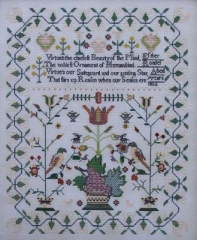 Virtue's the chiefest Beauty of the Mind
The noblest Ornament of Humankind
Virtue's our Safeguard and our guiding Star
That stirs up Reason when our Senses err
Aged
Years